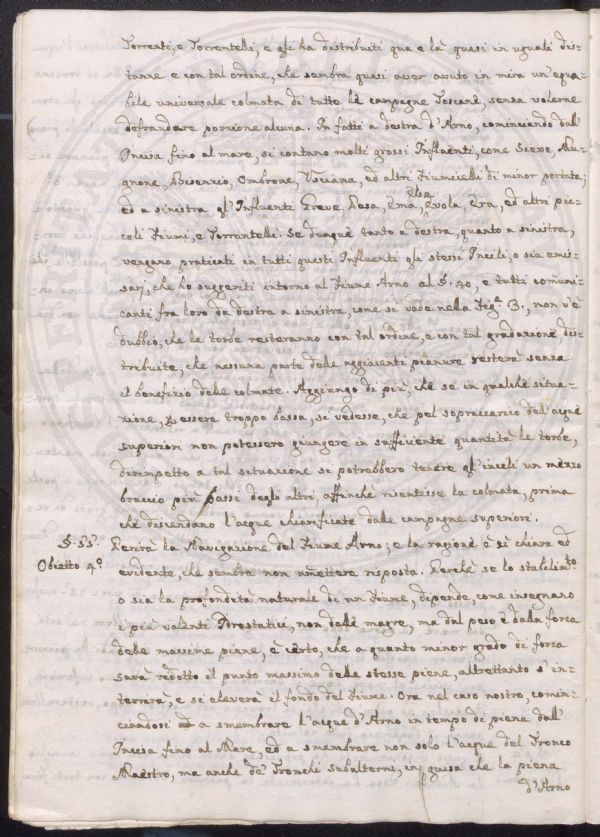 Torrenti, e Torrentelli, e gli ha destribuiti qua e là quasi in uguali dis-
tanze e con tal ordine, che sembra quasi aver avuto in mira un'equa-
bile universale colmata di tutte le campagne Toscane, senza volerne
defraudare porzione alcuna. In fatti a destra d'Arno, cominciando dall'
Incisa fino al mare, si contano molti grossi Influenti, come Sieve, Mu-
gnone, Bisenzio, Ombrone, Usciana, ed altri Fiumicelli di minor portata;
ed a sinistra gl'Influenti Greve, Pesa, Ema, Elsa, Evola Era, ed altri pic-
coli Fiumi, e Torrentelli. Se dunque tanto a destra, quanto a sinistra,
vengano praticati in tutti questi Influenti gli stessi Incili, o sia emis-
sarj, che ho suggeriti intorno al Fiume Arno al §. 40, e tutti comuni-
canti fra loro da destra a sinistra, come si vede nella Fig.ª 3., non v'è
dubbio, che le torbe resteranno con tal ordine, e con tal gradazione, dis-
tribuite, che nessuna parte delle aggiacenti pianure resterà senza
il benefizio delle colmate. Aggiungo di più, che se in qualche situa-
zione, p essere troppo bassa, si vedesse, che pel sopraccarico dell'acque
superiori non potessero giungere in sufficiente quantità le torbe,
dirimpetto a tal situazione si potrebbero tenere gl'incili un mezzo
braccio più bassi degli altri, affinchè risentisse la colmata, prima
che discendano l'acque chiarificate dalle campagne superiori.
§. 55. Perirà la Navigazione del Fiume Arno; e la ragione è sì chiara ed
Obietto 4.º evidente, che sembra non amettere risposta. Perchè se lo stabilim.to
o sia la profondità naturale di un Fiume, dipende, come insegnano
i più valenti Idrostatici, non dalle magre, ma dal peso e dalla forza
delle massime piene, è certo, che a quanto minor grado di forza
sarà redotto il punto massimo delle stesse piene, altrettanto s'in-
terrirà, e si eleverà il fondo del Fiume. Ora nel caso nostro, comin-
ciandosi a smembrare l'acque d'Arno in tempo di piena dall'
Incisa fino al Mare, ed a smembrare non solo l'acque del Tronco
Maestro, ma anche de' Tronchi subalterni, in guisa che la piena
d'Arno